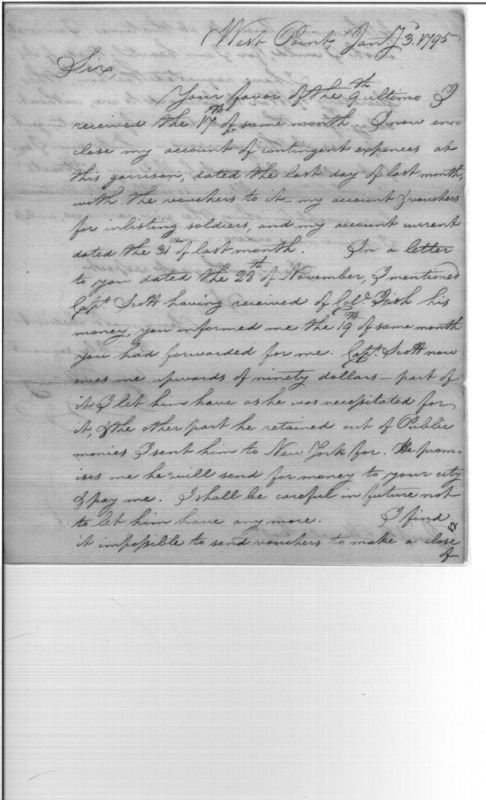 West Point, Jan.y 3.d 1795
Sir,
Your favor of the 9th ultimo I
received the 17th of same month. I now en-
close my account of contingent expences at
this garrison, dated the last day of last month,
with the vouchers to it — my account & vouchers
for inlisting soldiers, and my account current
dated the 31st of last month. In a letter
to you dated the 22th of November, I mentioned
Capt. Scott having received of Col. Fish his
money, you informed me the 19th of same month
you had forwarded for me. Capt. Scott now
owes me upwards of ninety dollars — part of
it I let him have as he was necessitated for
it, & the other part he retained out of Public
monies I sent him to New York for. He prom-
ises me he will send for money to your city
& pay me. I shall be careful in future not
to let him have any more. I find
it impossible to send vouchers to make a close
of